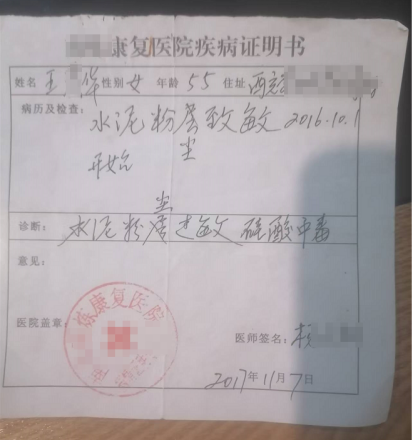 康复医院疾病证明书
姓名 王 华 性别 女 年龄 55 住址 西
病历及检查: 水泥粉 致敏 2016.10.1
尘
开始
尘
诊断: 水泥粉 过敏 硫酸中毒
意见:
康复医院
医院盖章: 医师签名:
2017年11月7日